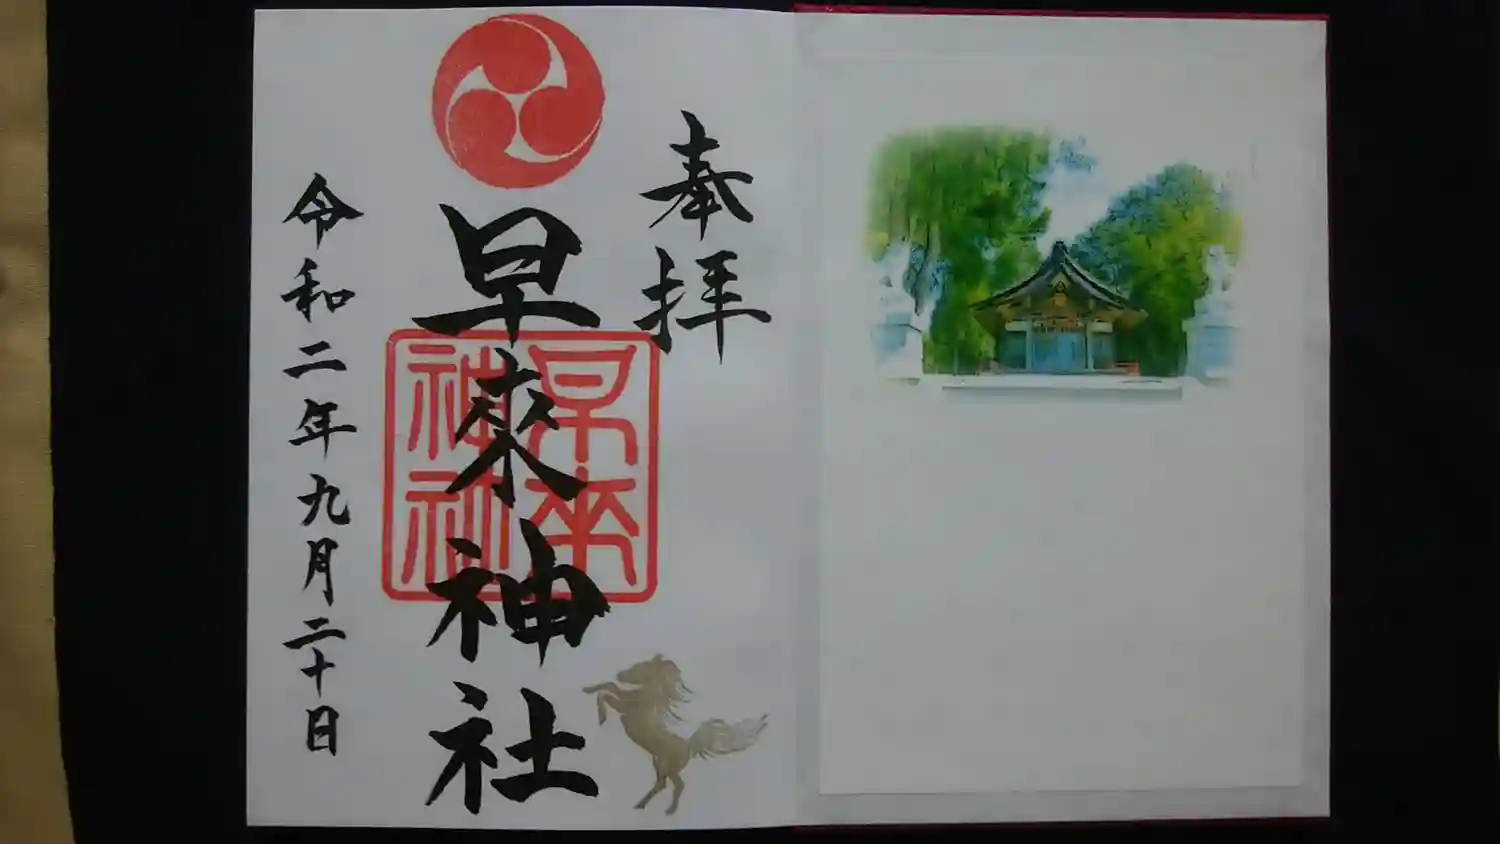 奉拝
早來神社
早来神社
令和二年九月二十日